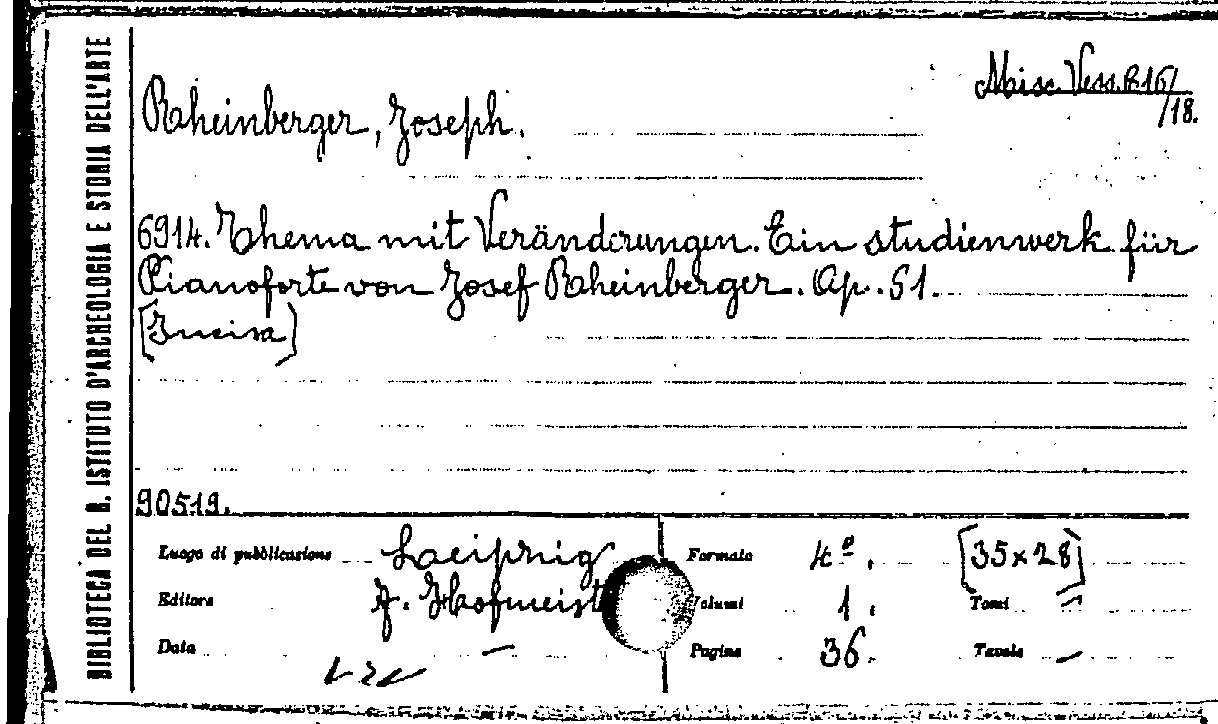 BIBLIOTECA DEL R. ISTITUTO D'ARCHEOLOGIA E STORIA DELL'ARTE
Misc. Vess. B. 16/
/18.
Rheinberger, Joseph.
6914. Thema mit Veränderungen. Ein studienwerk für
Pianoforte von Josef Rheinberger. Op. 51.
[Incisa]
90519.
Luogo di pubblicazione Laeipzig Formato 4º. [35×28]
Editore F. Hofmeist Volumi 1. Tomi –
Data – Pagine 36. Tavole –